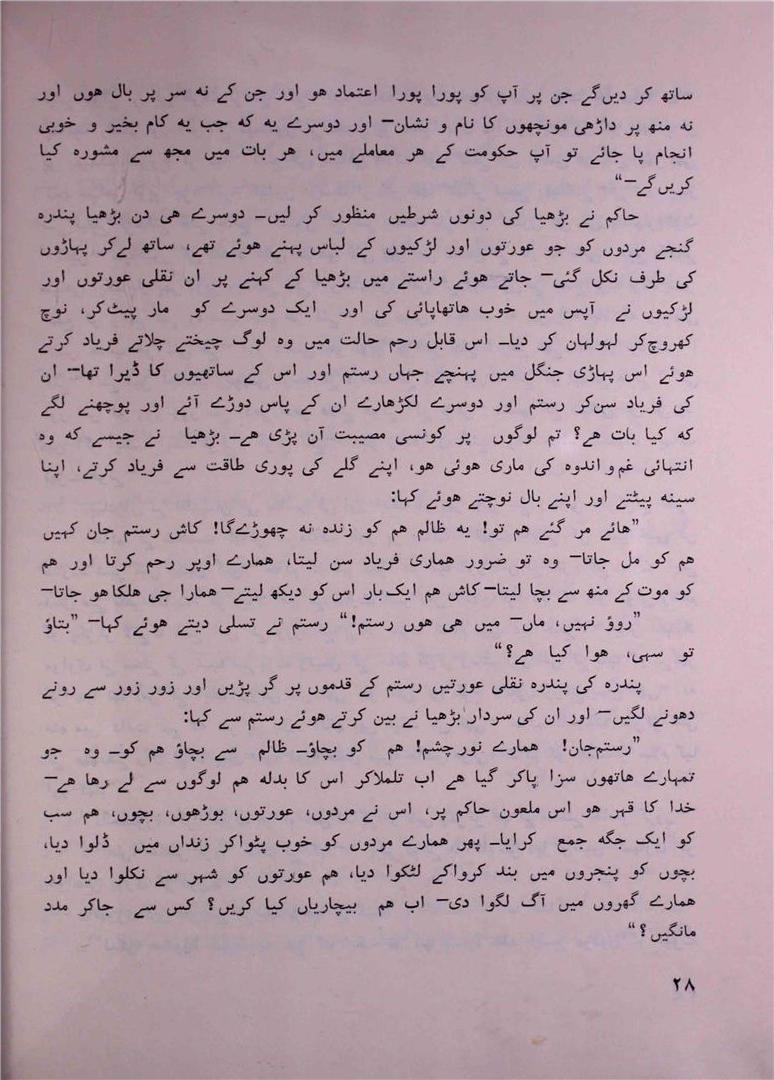 ساتھ کر دیں گے جن پر آپ کو پورا پورا اعتماد ھو اور جن کے نہ سر پر بال ھوں اور
نہ منھ پر داڑھی مونچھوں کا نام و نشان— اور دوسرے یہ کہ جب یہ کام بخیر و خوبی
انجام پا جائے تو آپ حکومت کے ھر معاملے میں، ھر بات میں مجھ سے مشورہ کیا
کریں گے—“
حاکم نے بڑھیا کی دونوں شرطیں منظور کر لیں۔ دوسرے ھی دن بڑھیا پندرہ
گنجے مردوں کو جو عورتوں اور لڑکیوں کے لباس پہنے ھوئے تھے، ساتھ لے کر پہاڑوں
کی طرف نکل گئی— جاتے ھوئے راستے میں بڑھیا کے کہنے پر ان نقلی عورتوں اور
لڑکیوں نے آپس میں خوب ھاتھاپائی کی اور ایک دوسرے کو مار پیٹ کر، نوچ
کھروچ کر لہولہان کر دیا۔ اس قابل رحم حالت میں وہ لوگ چیختے چلاتے فریاد کرتے
ھوئے اس پہاڑی جنگل میں پہنچے جہاں رستم اور اس کے ساتھیوں کا ڈیرا تھا— ان
کی فریاد سن کر رستم اور دوسرے لکڑھارے ان کے پاس دوڑے آئے اور پوچھنے لگے
کہ کیا بات ھے؟ تم لوگوں پر کونسی مصیبت آن پڑی ھے۔ بڑھیا نے جیسے کہ وہ
انتہائی غم و اندوہ کی ماری ھوئی ھو، اپنے گلے کی پوری طاقت سے فریاد کرتے، اپنا
سینہ پیٹتے اور اپنے بال نوچتے ھوئے کہا:
”ھائے مر گئے ھم تو! یہ ظالم ھم کو زندہ نہ چھوڑے گا! کاش رستم جان کہیں
ھم کو مل جاتا— وہ تو ضرور ھماری فریاد سن لیتا، ھمارے اوپر رحم کرتا اور ھم
کو موت کے منھ سے بچا لیتا— کاش ھم ایک بار اس کو دیکھ لیتے— ھمارا جی ھلکا ھو جاتا—
”روؤ نہیں، ماں— میں ھی ھوں رستم!“ رستم نے تسلی دیتے ھوئے کہا— ”بتاؤ
تو سہی، ھوا کیا ھے؟“
پندرہ کی پندرہ نقلی عورتیں رستم کے قدموں پر گر پڑیں اور زور زور سے رونے
دھونے لگیں— اور ان کی سردار بڑھیا نے بین کرتے ھوئے رستم سے کہا:
”رستم جان! ھمارے نور چشم! ھم کو بچاؤ۔ ظالم سے بچاؤ ھم کو۔ وہ جو
تمہارے ھاتھوں سزا پاکر گیا ھے اب تلملاکر اس کا بدلہ ھم لوگوں سے لے رھا ھے—
خدا کا قہر ھو اس ملعون حاکم پر، اس نے مردوں، عورتوں، بوڑھوں، بچوں، ھم سب
کو ایک جگہ جمع کرایا۔ پھر ھمارے مردوں کو خوب پٹواکر زنداں میں ڈلوا دیا،
بچوں کو پنجروں میں بند کرواکے لٹکوا دیا، ھم عورتوں کو شہر سے نکلوا دیا اور
ھمارے گھروں میں آگ لگوا دی— اب ھم بیچاریاں کیا کریں؟ کس سے جاکر مدد
مانگیں؟“
۲۸